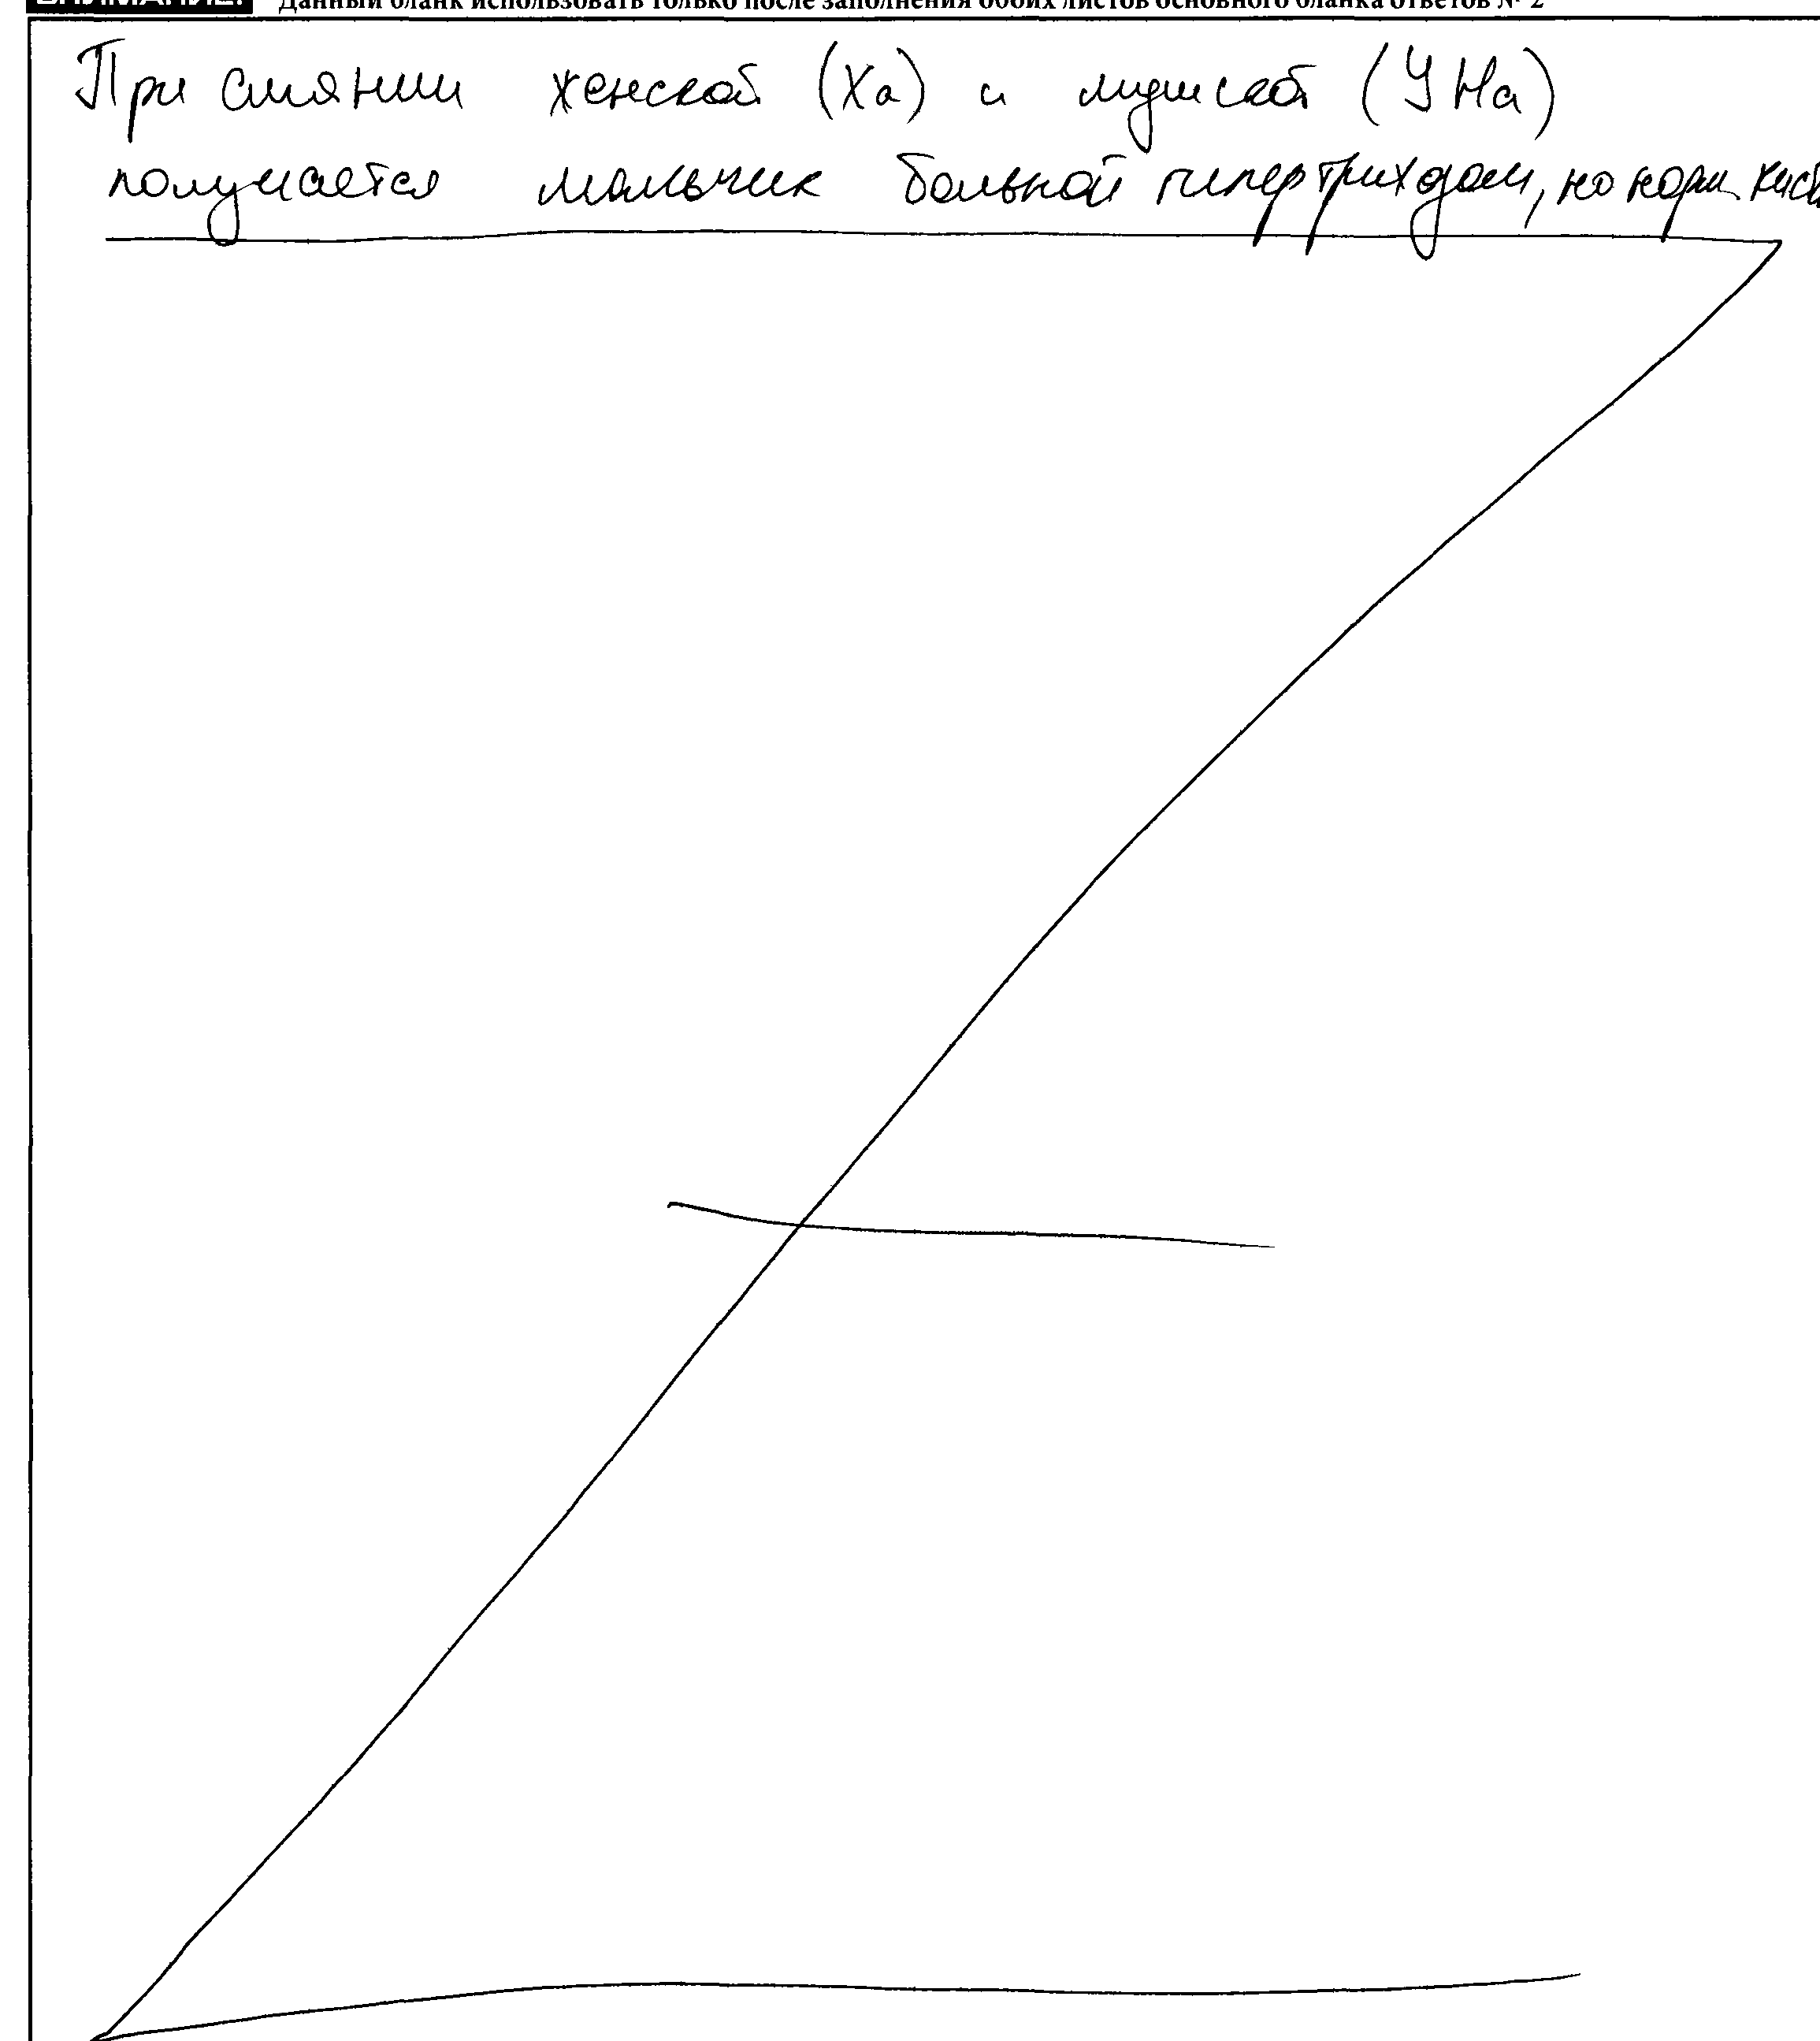 ВНИМАНИЕ! Данный бланк использовать только после заполнения обоих листов основного бланка ответов № 2
При слиянии женской (Ха) и мужской (УНа)
получается мальчик больной гипертриходом, но норм